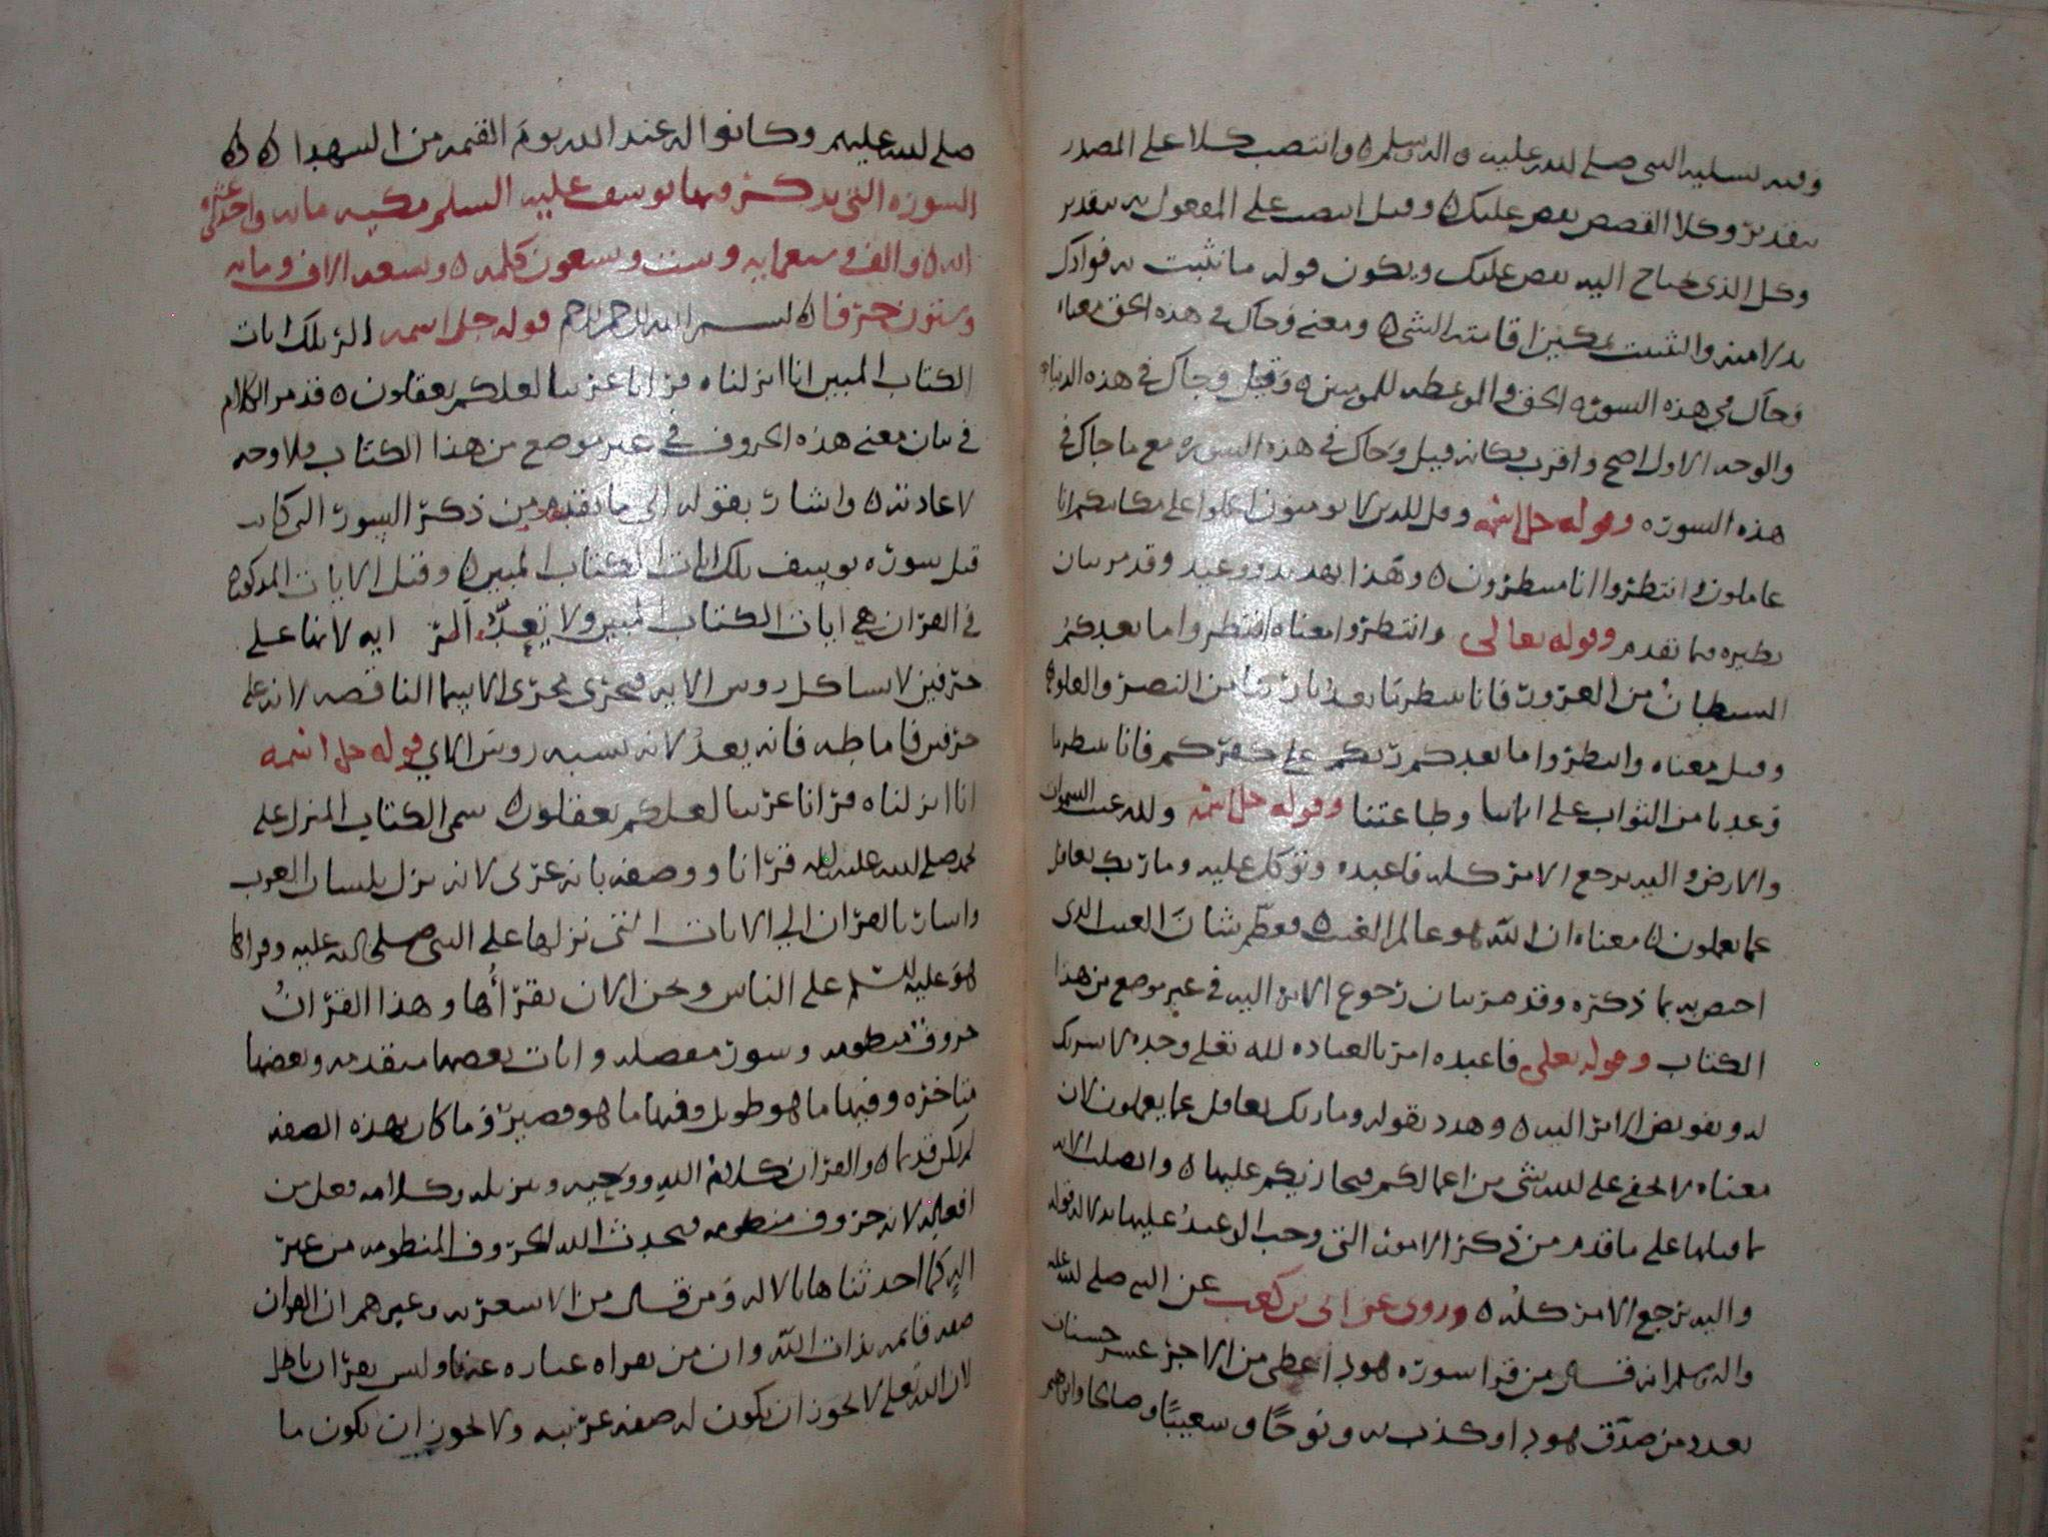 وفيه تسلية النبي صلى الله عليه و اله وسلم ه وانتصب كلا على المصدر
بتقدير وكلا القصص نقص عليك ه وقيل انتصب على المفعول به بتقدير
وكل الذي تحتاج اليه نقص عليك ويكون قوله ما نثبت به فوادك
بدلا منه والتثبيت تمكين اقامته الشي ه ومعنى وجاك في هذه الحق معناه
وجاك في هذه السورة الحق والموعظه للمومنين ه وقيل وجاك في هذه الدنيا
والوجه الاول اصح واقرب فكانه قيل وجاك في هذه السورة مع ما جاك في
هذه السورة وقوله جل اسمه وقل للذين لا يومنون اعملوا على مكانتكم انا
عاملون وانتظروا انا منتظرون ه وهذا تهديد ووعيد وقد مر بيان
نظيره فيما تقدم وقوله تعالى وانتظروا معناه انتظروا ما يعدكم
الشيطان من الغرور فانا منتظرون ما يعدنا ربنا من النصر والعلو ه
وقيل معناه وانتظروا ما يعدكم ربكم على كفركم فانا منتظرون ما
وعدنا من الثواب على ايماننا وطاعتنا وقوله جل اسمه ولله غيب السموات
والارض واليه يرجع الامر كله فاعبده وتوكل عليه وما ربك بغافل
عما يعملون ه معناه ان الله هو عالم الغيب ه فعظم شان الغيب الذي
اختص به بما ذكره وقد مر بيان رجوع الامر اليه في غير موضع من هذا
الكتاب وقوله تعلى فاعبده امر بالعباده لله تعلى وحده لا شريك
له وتفويض الامر اليه ه وهدد بقوله وما ربك بغافل عما يعملون لان
معناه لا يخفى على الله شي من اعمالكم فيجازيكم عليها ه واتصلت الايه
بما قبلها على ما تقدم من ذكر الامور التي وجب الوعيد عليها بدلاله قوله
واليه يرجع الامر كله ه وروى عن ابي بن كعب عن النبي صلى الله عليه
واله وسلم انه قال من قرا سورة هود اعطي من الاجر عشر حسنات
بعدد من صدق هود او كذب به ونوحًا وشعيبًا وصالحا وابراهيم
صلى الله عليهم وكانوا له عند الله يوم القيمه من الشهدا ه ه
السورة التي يذكر فيها يوسف عليه السلم مكيه مايه واحدى عشرة
ايه ه والف وسبعمايه وست وسبعون كلمه ه وسبعه الاف ومايه
وستون حرفا ه بسم الله الرحمن الرحيم قوله جل اسمه الر تلك ايات
الكتاب المبين انا انزلناه قرانا عربيا لعلكم تعقلون ه قد مر الكلام
في بيان معنى هذه الحروف في غير موضع من هذا الكتاب فلا وجه
لاعادته ه واشار بقوله الى ما تقدم من ذكر السورة التي كانت
قبل سورة يوسف تلك ايات الكتاب المبين ه وقيل الايات المذكورة
في القران هي ايات الكتاب المبين ولا يعدّ الر ايه لانها على
حرفين لا يشاكل روس الايه فيجرى مجرى الاسما الناقصه لانه على
حرفين فاما طه فانه يعد لانه يشبه روس الاي قوله جل اسمه
انا انزلناه قرانا عربيا لعلكم تعقلون ه سمى الكتاب المنزل على
محمد صلى الله عليه واله قرانا ووصفه بانه عربى لانه نزل بلسان العرب
واشار بالقران الى الايات التي نزلها على النبي صلى الله عليه وقراها
هو عليه السلم على الناس ونحن الان نقراها وهذا القران
حروف منظومه وسور مفصله وايات بعضها متقدمه وبعضها
متاخره وفيها ما هو طويل وفيها ما هو قصير وما كان بهذه الصفه
لم يكن قديما ه والقران كلام الله ووحيه وتنزيله وكلامه فعل من
افعاله لانه حروف منظومه فيحدث الله الحروف المنظومه من غير
اله كما احدثناها بالاله ومن قال من الاشعريه وغيرهم ان القران
صفه قائمه بذات الله وان من يقراه عباره عنه وليس بقران باطل
لان الله تعلى لا يجوز ان يكون له صفه عربيه ولا يجوز ان يكون ما